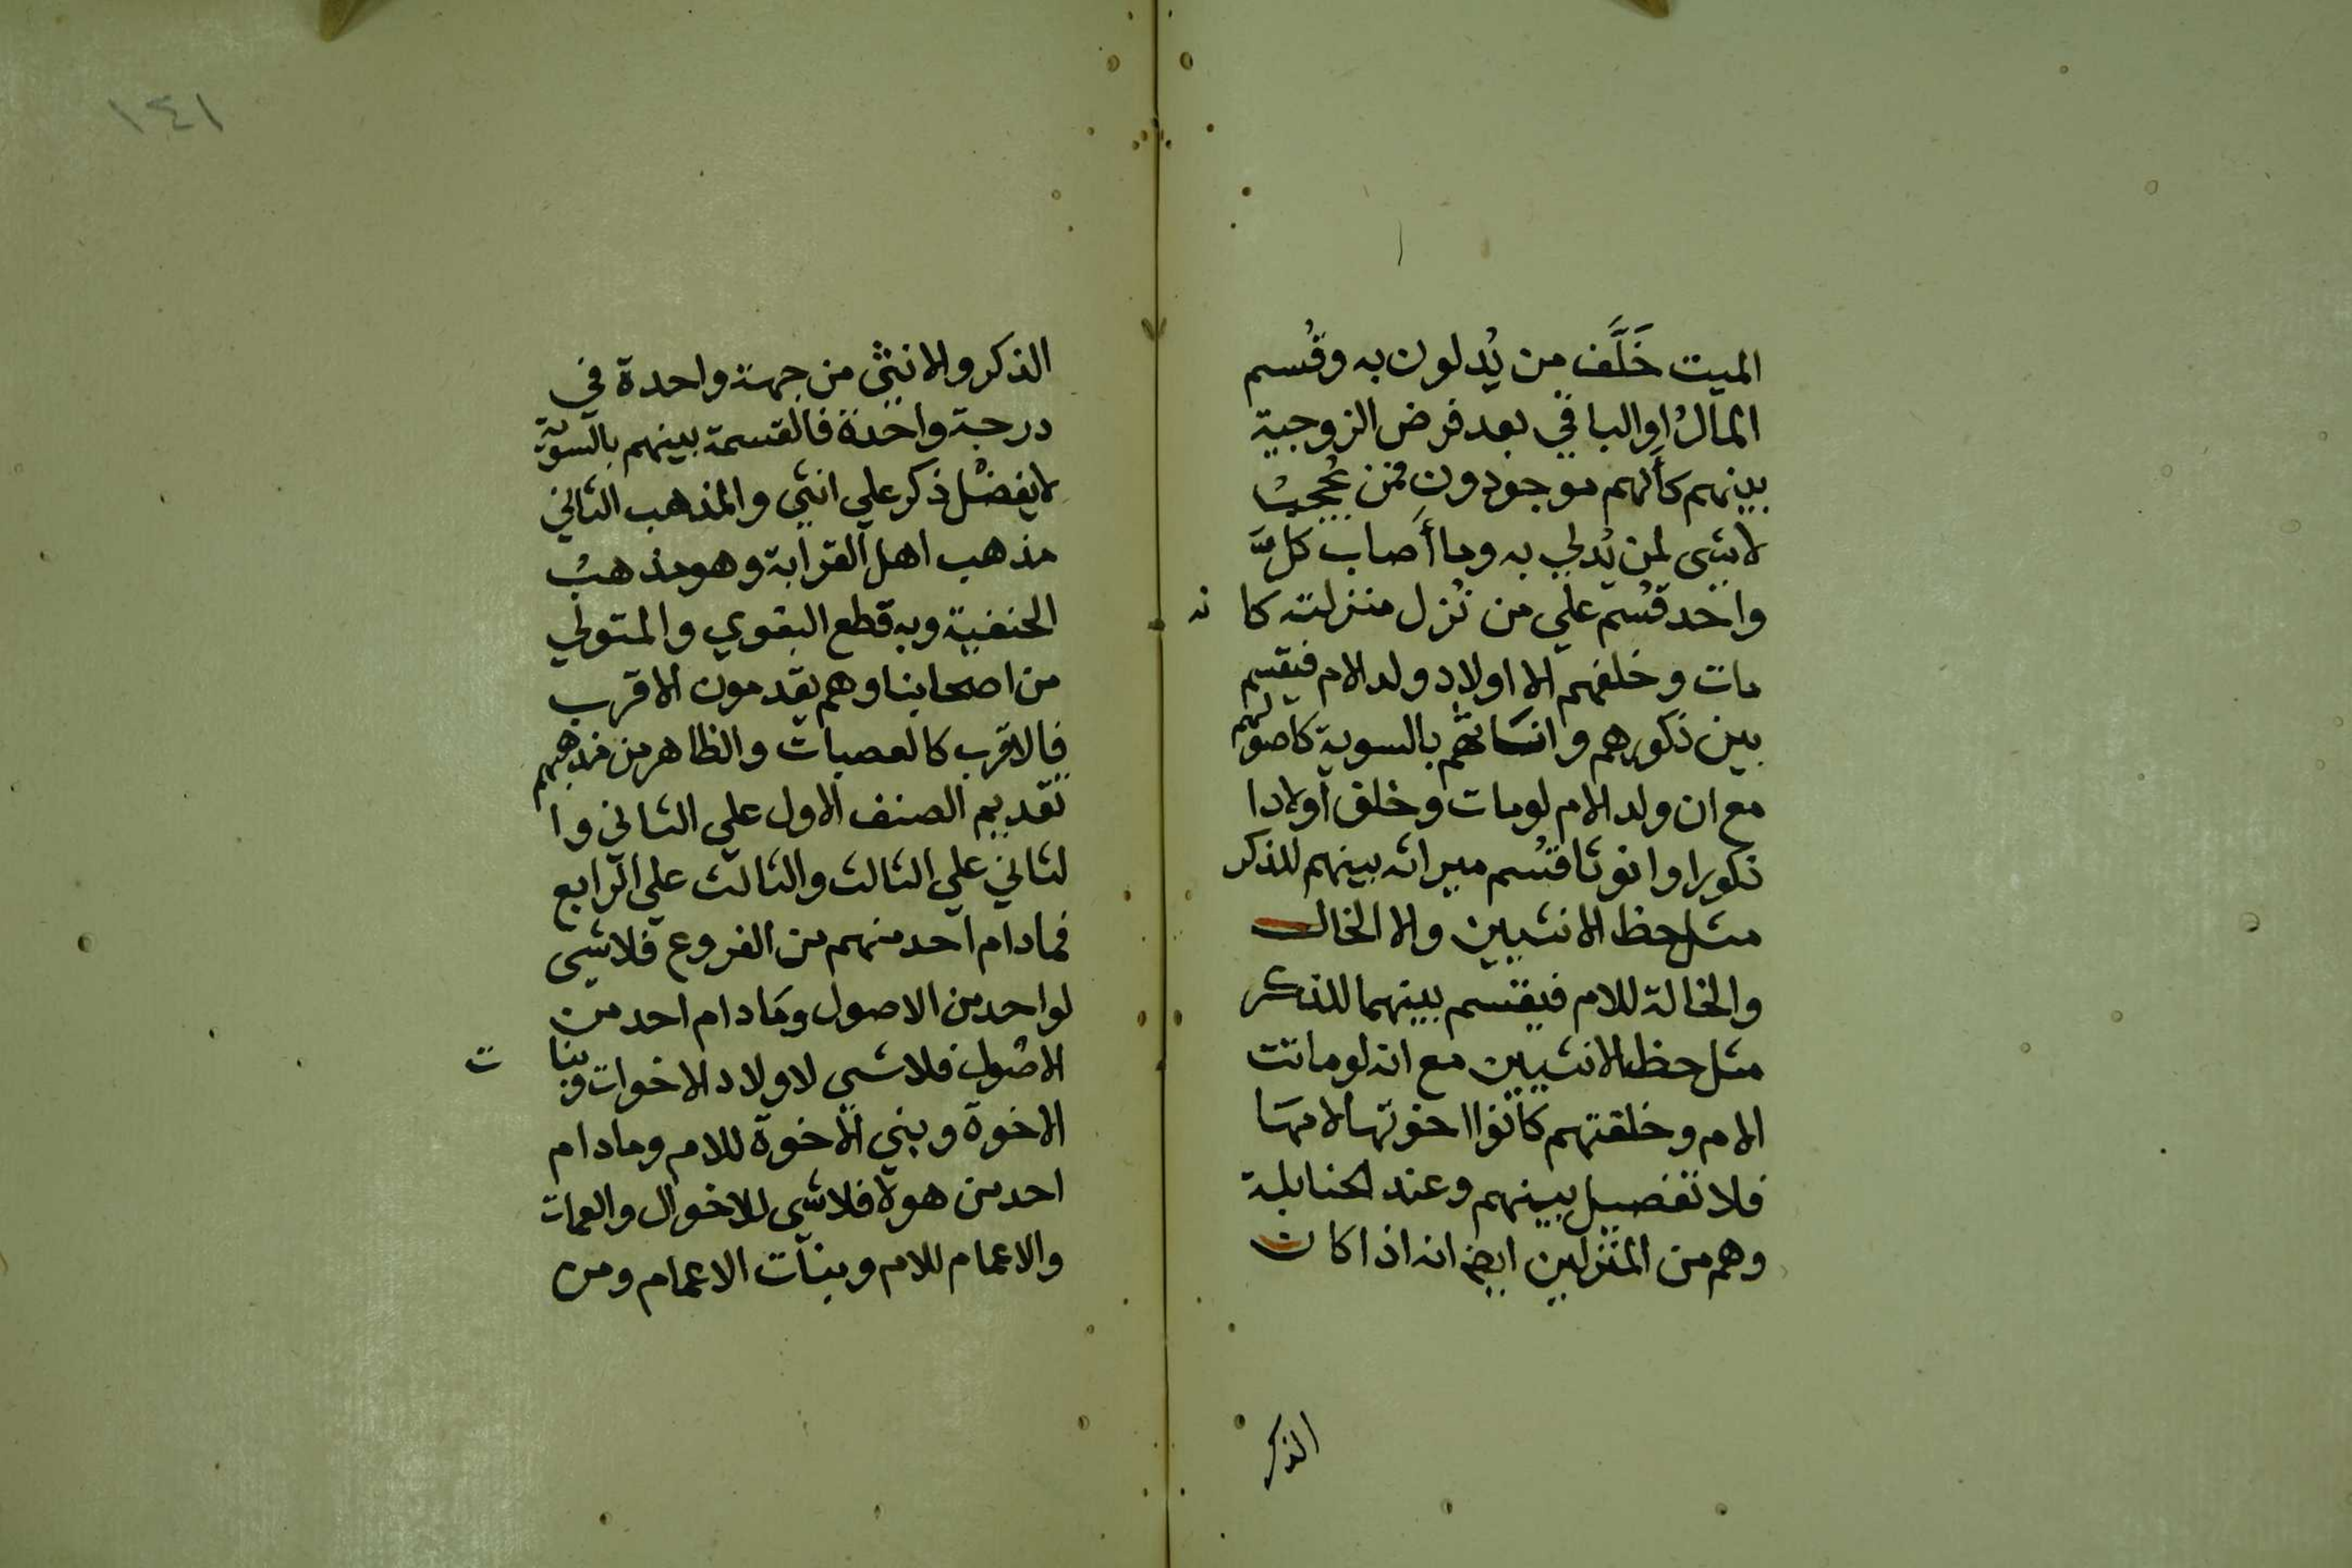 الميت خَلَّف من يُدلون به وقُسم
المالُ اوِ الباقي بعد فرض الزوجية
بينهم كأنهم موجودون فمن يُحجبُ
لا شى لمن يُدلي به وما أَصاب كلَّ
واحد قُسم على من نُزل منزلته كا نه
مات وخلفهم الا اولاد ولد الام فيقسم
بين ذكورهم وانساثهم بالسوية كاصولهم
مع ان ولد الام لومات وخلف أولادا
ذكورا وانوثا قُسم ميراثه بينهم للذكر
مثل حظ الانثيين والا الخال
والخالة للام فيقسم بينهما للذكر
مثل حظ الانثيين مع انه لوماتت
الام وخلفتهم كانوا اخوتها لامها
فلا تفضيل بينهم وعند الحنابلة
وهم من المنزلين ايض انه اذا كان
الذكر
١٤١
الذكر والانثى من جهة واحدة في
درجة واحدة فالقسمة بينهم بالسوية
لايفضُل ذكر علي انثى والمذهب الثاني
مذهب اهل القرابة وهو مذهبُ
الحنفية وبه قطع البغوي والمتولي
من اصحابنا وهم يقدمون الاقرب
فالاقرب كالعصبات والظاهر من مذهبهم
تقديم الصنف الاول علي الثاني وا
لثاني علي الثالث والثالث علي الرابع
فمادام احد منهم من الفروع فلاشى
لواحد من الاصول ومَادام احد من
الاصُول فلاشي لاولاد الاخوات وبنا ت
الاخوة وبني الاخوة للام ومادام
احد من هولا فلاشى للاخوال والعمات
والاعمام للام وبنات الاعمام ومن